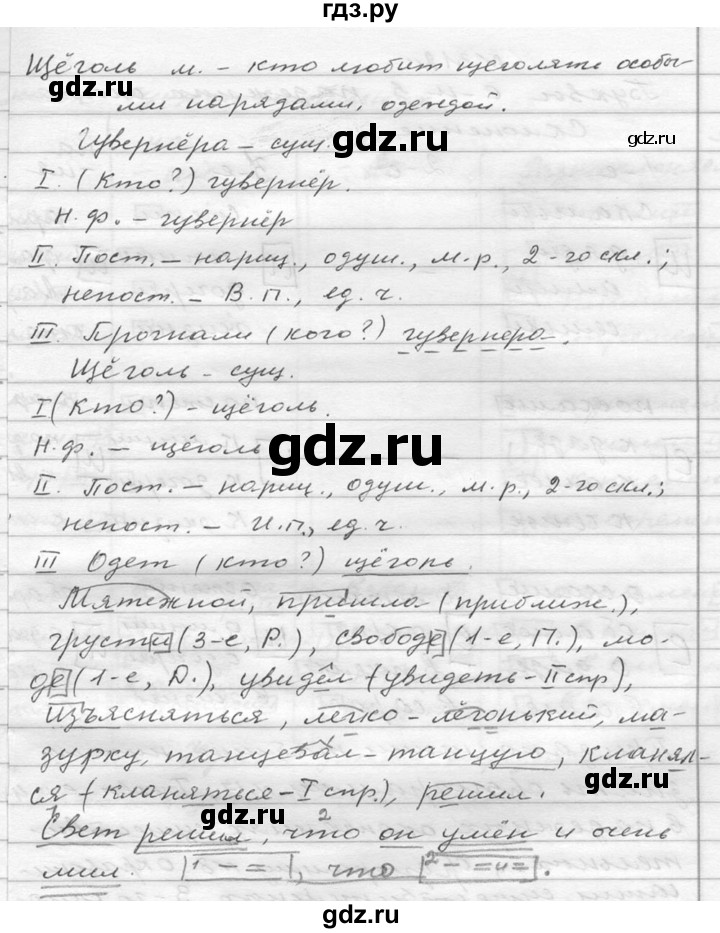 гдз.ру
Щёголь м. – кто любит щеголять особы-
ми нарядами, одеждой.
Гувернёра – сущ.
I. (Кто?) гувернёр.
Н.ф. – гувернёр
II. Пост. – нариц., одуш., м.р., 2-го скл.;
непост. – В.П., ед.ч.
III. Прогнали (кого?) гувернера.
Щёголь – сущ.
I (Кто?) – щёголь.
Н.ф. – щёголь
II. Пост. – нариц., одуш., м.р., 2-го скл.;
непост. – И.П., ед.ч.
III Одет (кто?) щёголь.
Мятежной, пришла (приближ.),
грусти (3-е, Р.), свободе (1-е, П.), мо-
де (1-е, Д.), увидел (увидеть – II спр),
изъясняться, легко – лёгонький, ма-
зурку, танцевал – танцую, кланял-
ся (кланяться – I спр.), решил.
Свет решил, что он умён и очень
мил. [1 – =], что [2 – = и =].
gdz.ru
gdz.ru
gdz.ru
gdz.ru
gdz.ru
gdz.ru
gdz.ru
gdz.ru
gdz.ru
gdz.ru